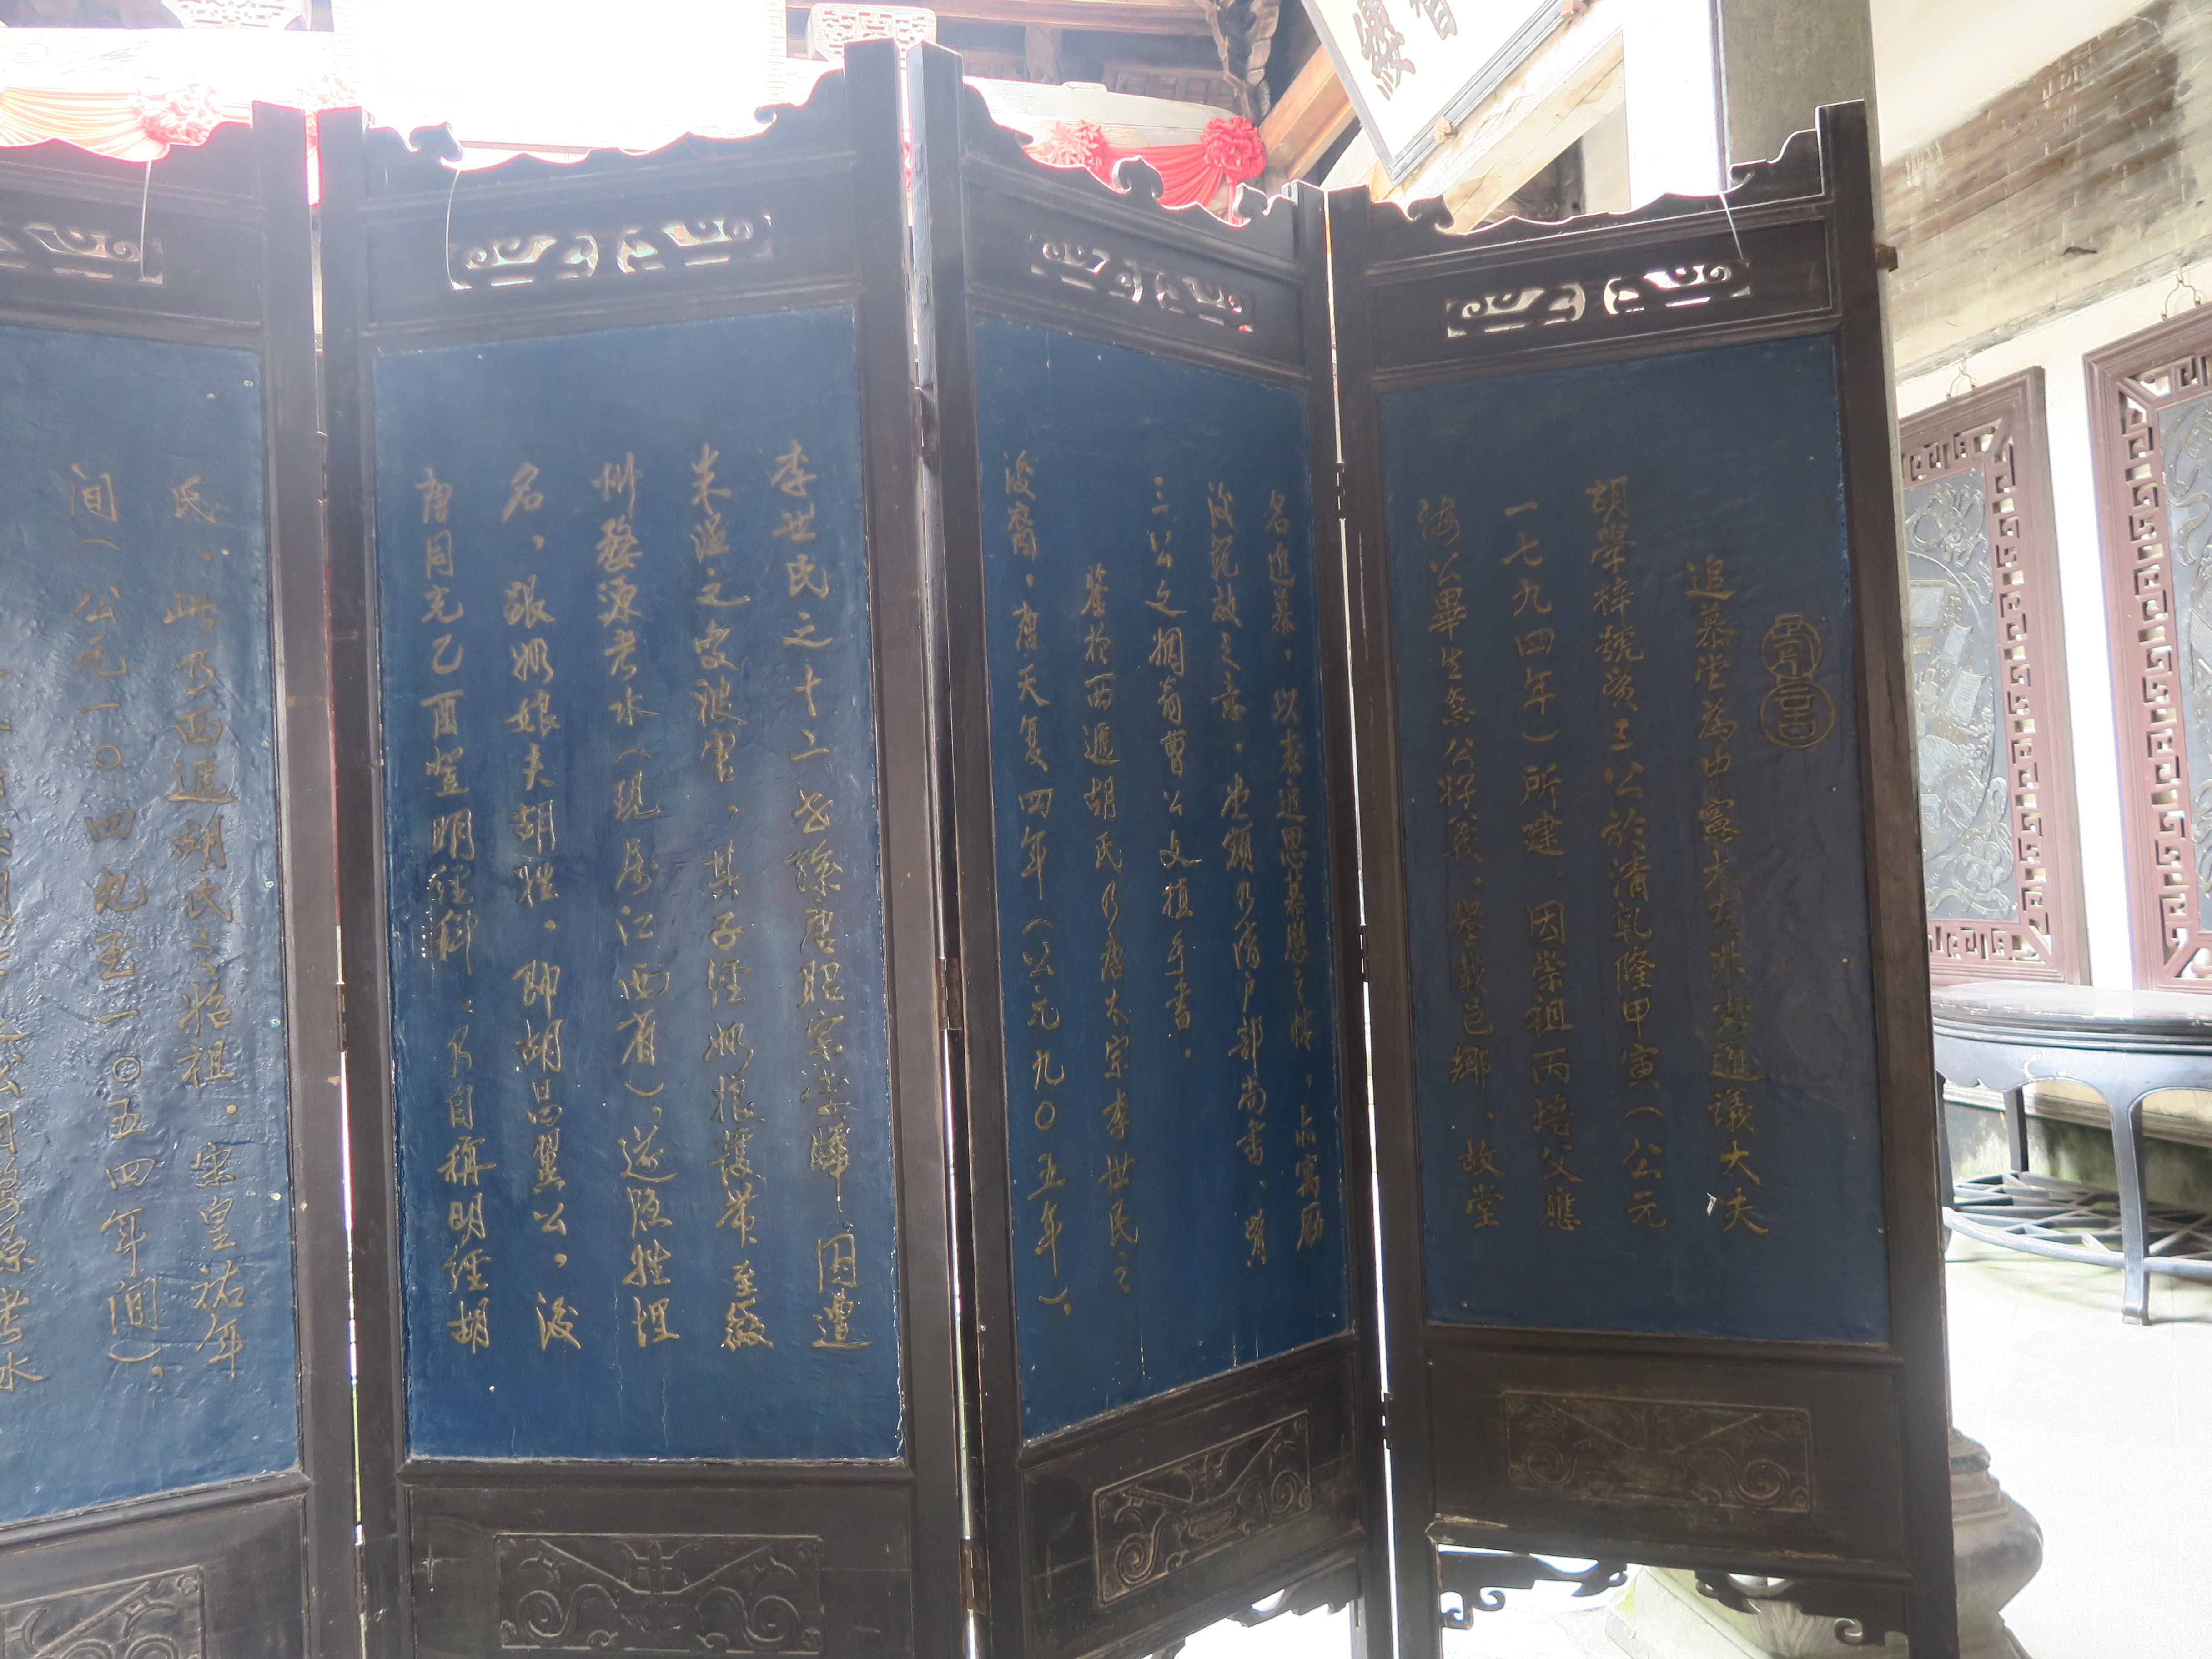 追慕堂為由憲大夫 通議大夫
胡學梓號貫三公於清乾隆甲寅（公元
一七九四年）所建．因崇祖丙培父應
海公畢生急公好義，譽載邑鄉，故堂
名追慕．以表追思慕戀之情，亦寓勵
後範故之意．堂額乃清戶部尚書、
三公文綱翁曹公文植手書．
鑒於西遞胡氏乃唐太宗李世民之
後裔．唐天复四年（公元九〇五年），
李世民之十二世孫唐昭宗 曄因遭
朱溫之 被害，其子經 護帶至
州婺源考水（現屬江西省），遂隱姓埋
名，張 娘夫胡姓．即胡昌翼公，後
唐同光乙酉登明經科．乃自稱明經胡
氏．此乃西遞胡氏之始祖．宋皇祐年
間（公元一〇四九至一〇五四年間），
公 婺源考水